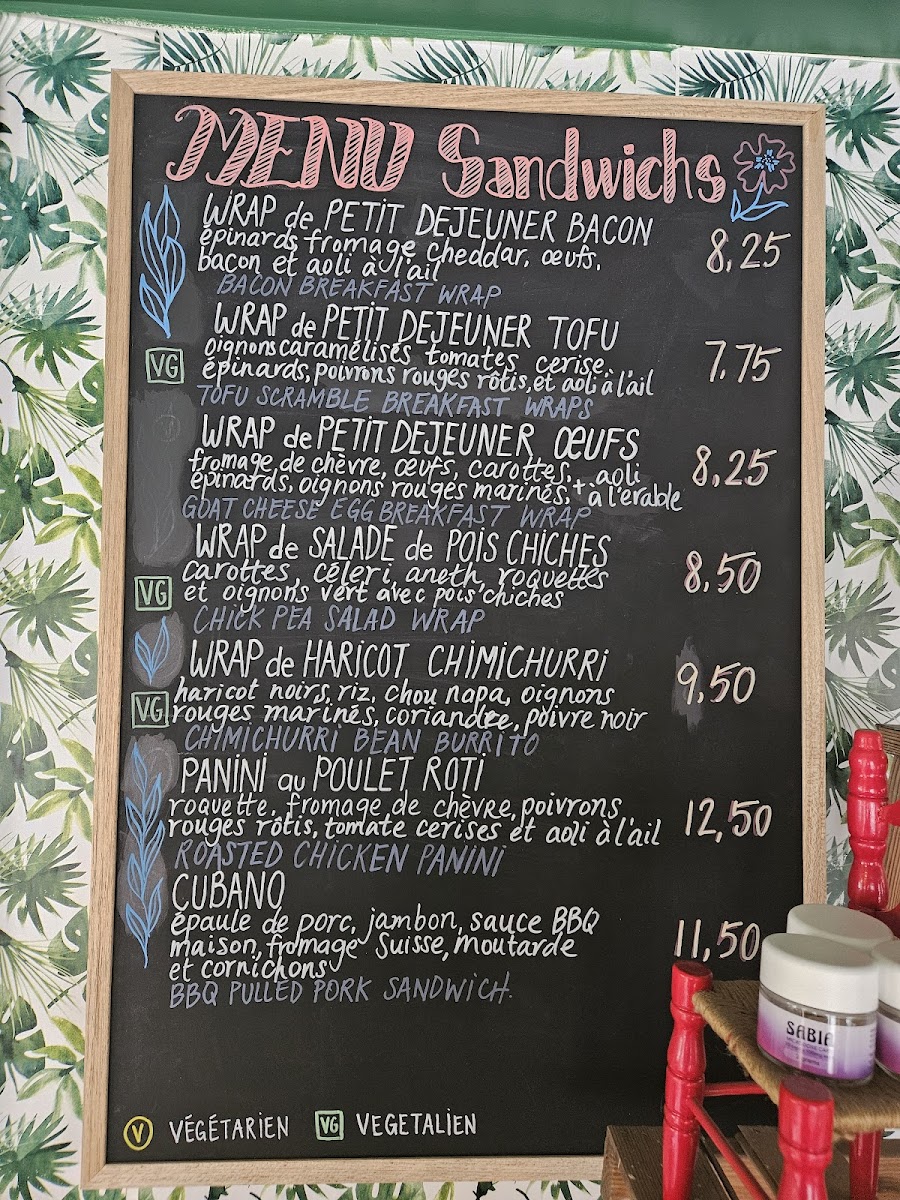 MENU Sandwichs
WRAP de PETIT DEJEUNER BACON
épinards, fromage cheddar, œufs,
bacon et aoli à l'ail
8,25
BACON BREAKFAST WRAP
WRAP de PETIT DEJEUNER TOFU
oignons caramélisés tomates cerise,
VG
épinards, poivrons rouges rôtis, et aoli à l'ail
7.75
TOFU SCRAMBLE BREAKFAST WRAPS
WRAP de PETIT DEJEUNER ŒUFS
fromage de chèvre, œufs, carottes, aoli
épinards, oignons rouges marinés, + à l'érable
8,25
GOAT CHEESE EGG BREAKFAST WRAP
WRAP de SALADE de POIS CHICHES
carottes, céleri, aneth, roquettes
VG
et oignons vert avec pois chiches
8,50
CHICK PEA SALAD WRAP
WRAP de HARICOT CHIMICHURRI
haricot noirs, riz, chou napa, oignons
VG
rouges marinés, coriandre, poivre noir
9,50
CHIMICHURRI BEAN BURRITO
PANINI au POULET ROTI
roquette, fromage de chèvre, poivrons
rouges rôtis, tomate cerises et aoli à l'ail
12,50
ROASTED CHICKEN PANINI
CUBANO
épaule de porc, jambon, sauce BBQ
maison, fromage suisse, moutarde
et cornichons
11,50
BBQ PULLED PORK SANDWICH.
V VÉGÉTARIEN VG VEGETALIEN
SABIA